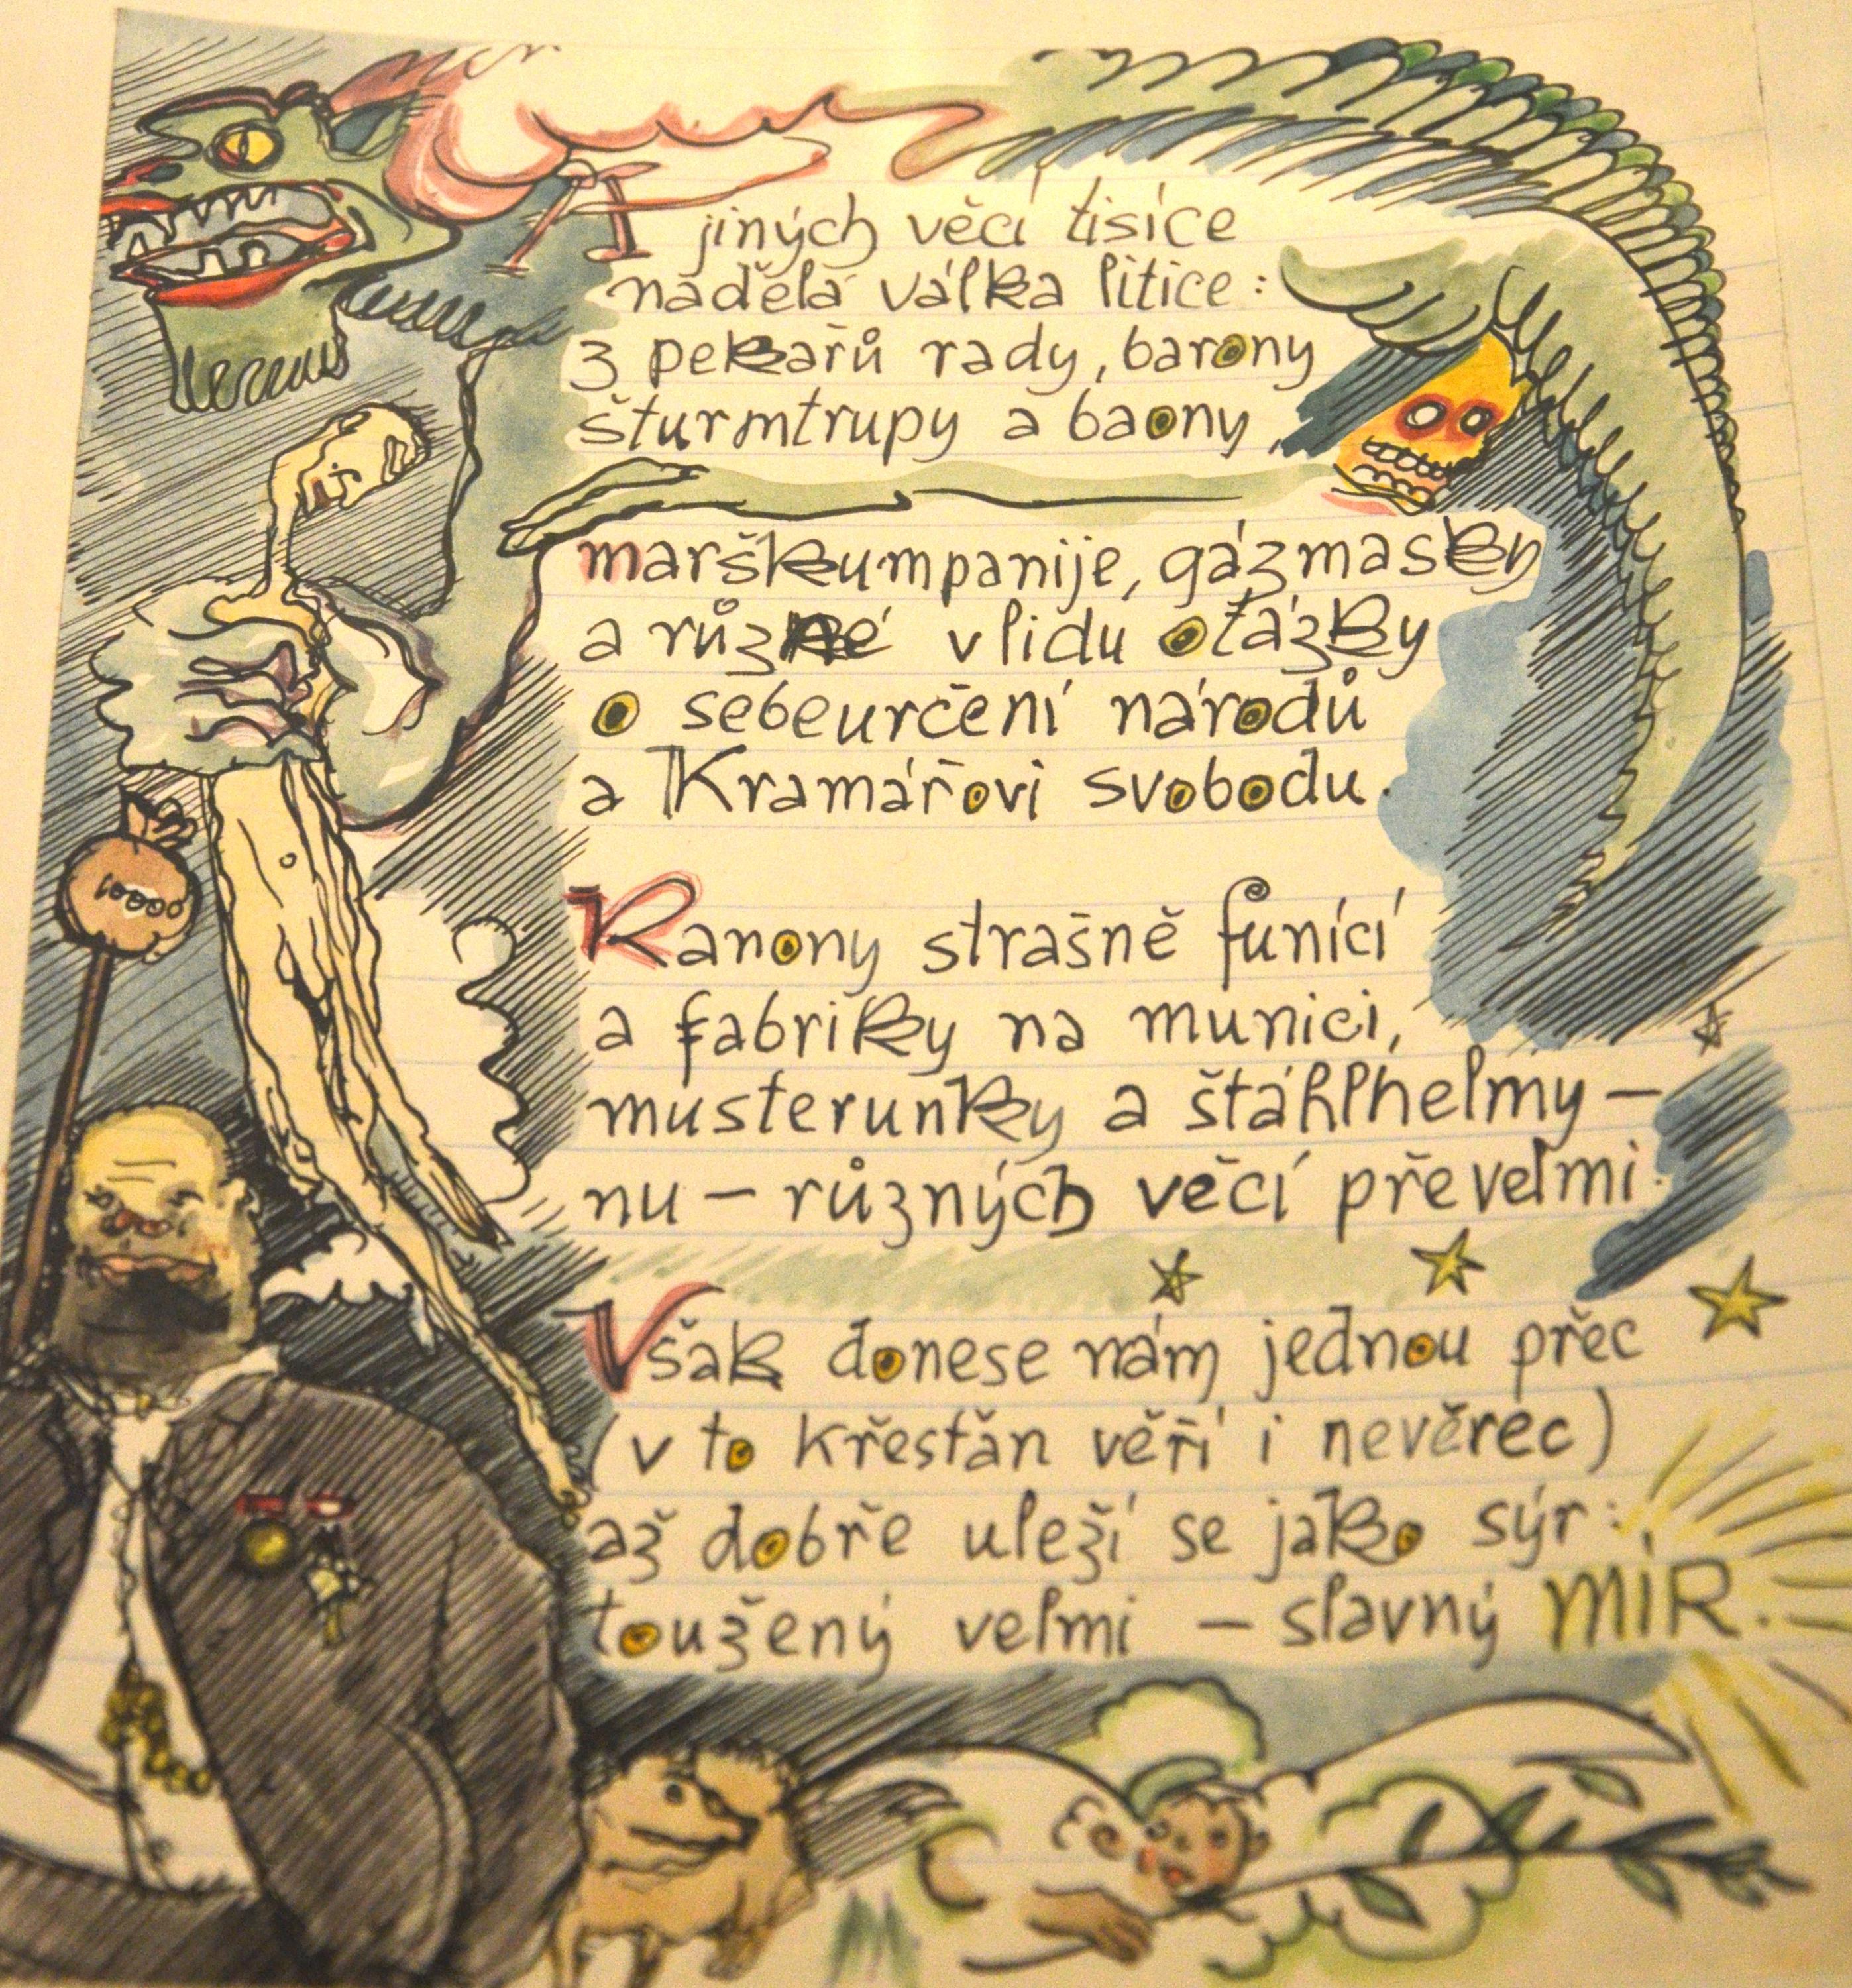 A jiných věcí tisíce
nadělá válka litice:
z pekařů rady, barony
šturmtrupy a baony,
marškumpanije, gázmasky
a různé v lidu otázky
o sebeurčení národů
a Kramářovi svobodu.
Kanony strašně funící
a fabriky na munici,
musterunky a štáhlhelmy –
nu – různých věcí převelmi.
Však donese nám jednou přec
(v to křesťan věří i nevěrec)
až dobře uleží se jako sýr:
toužený velmi – slavný MÍR.
10000